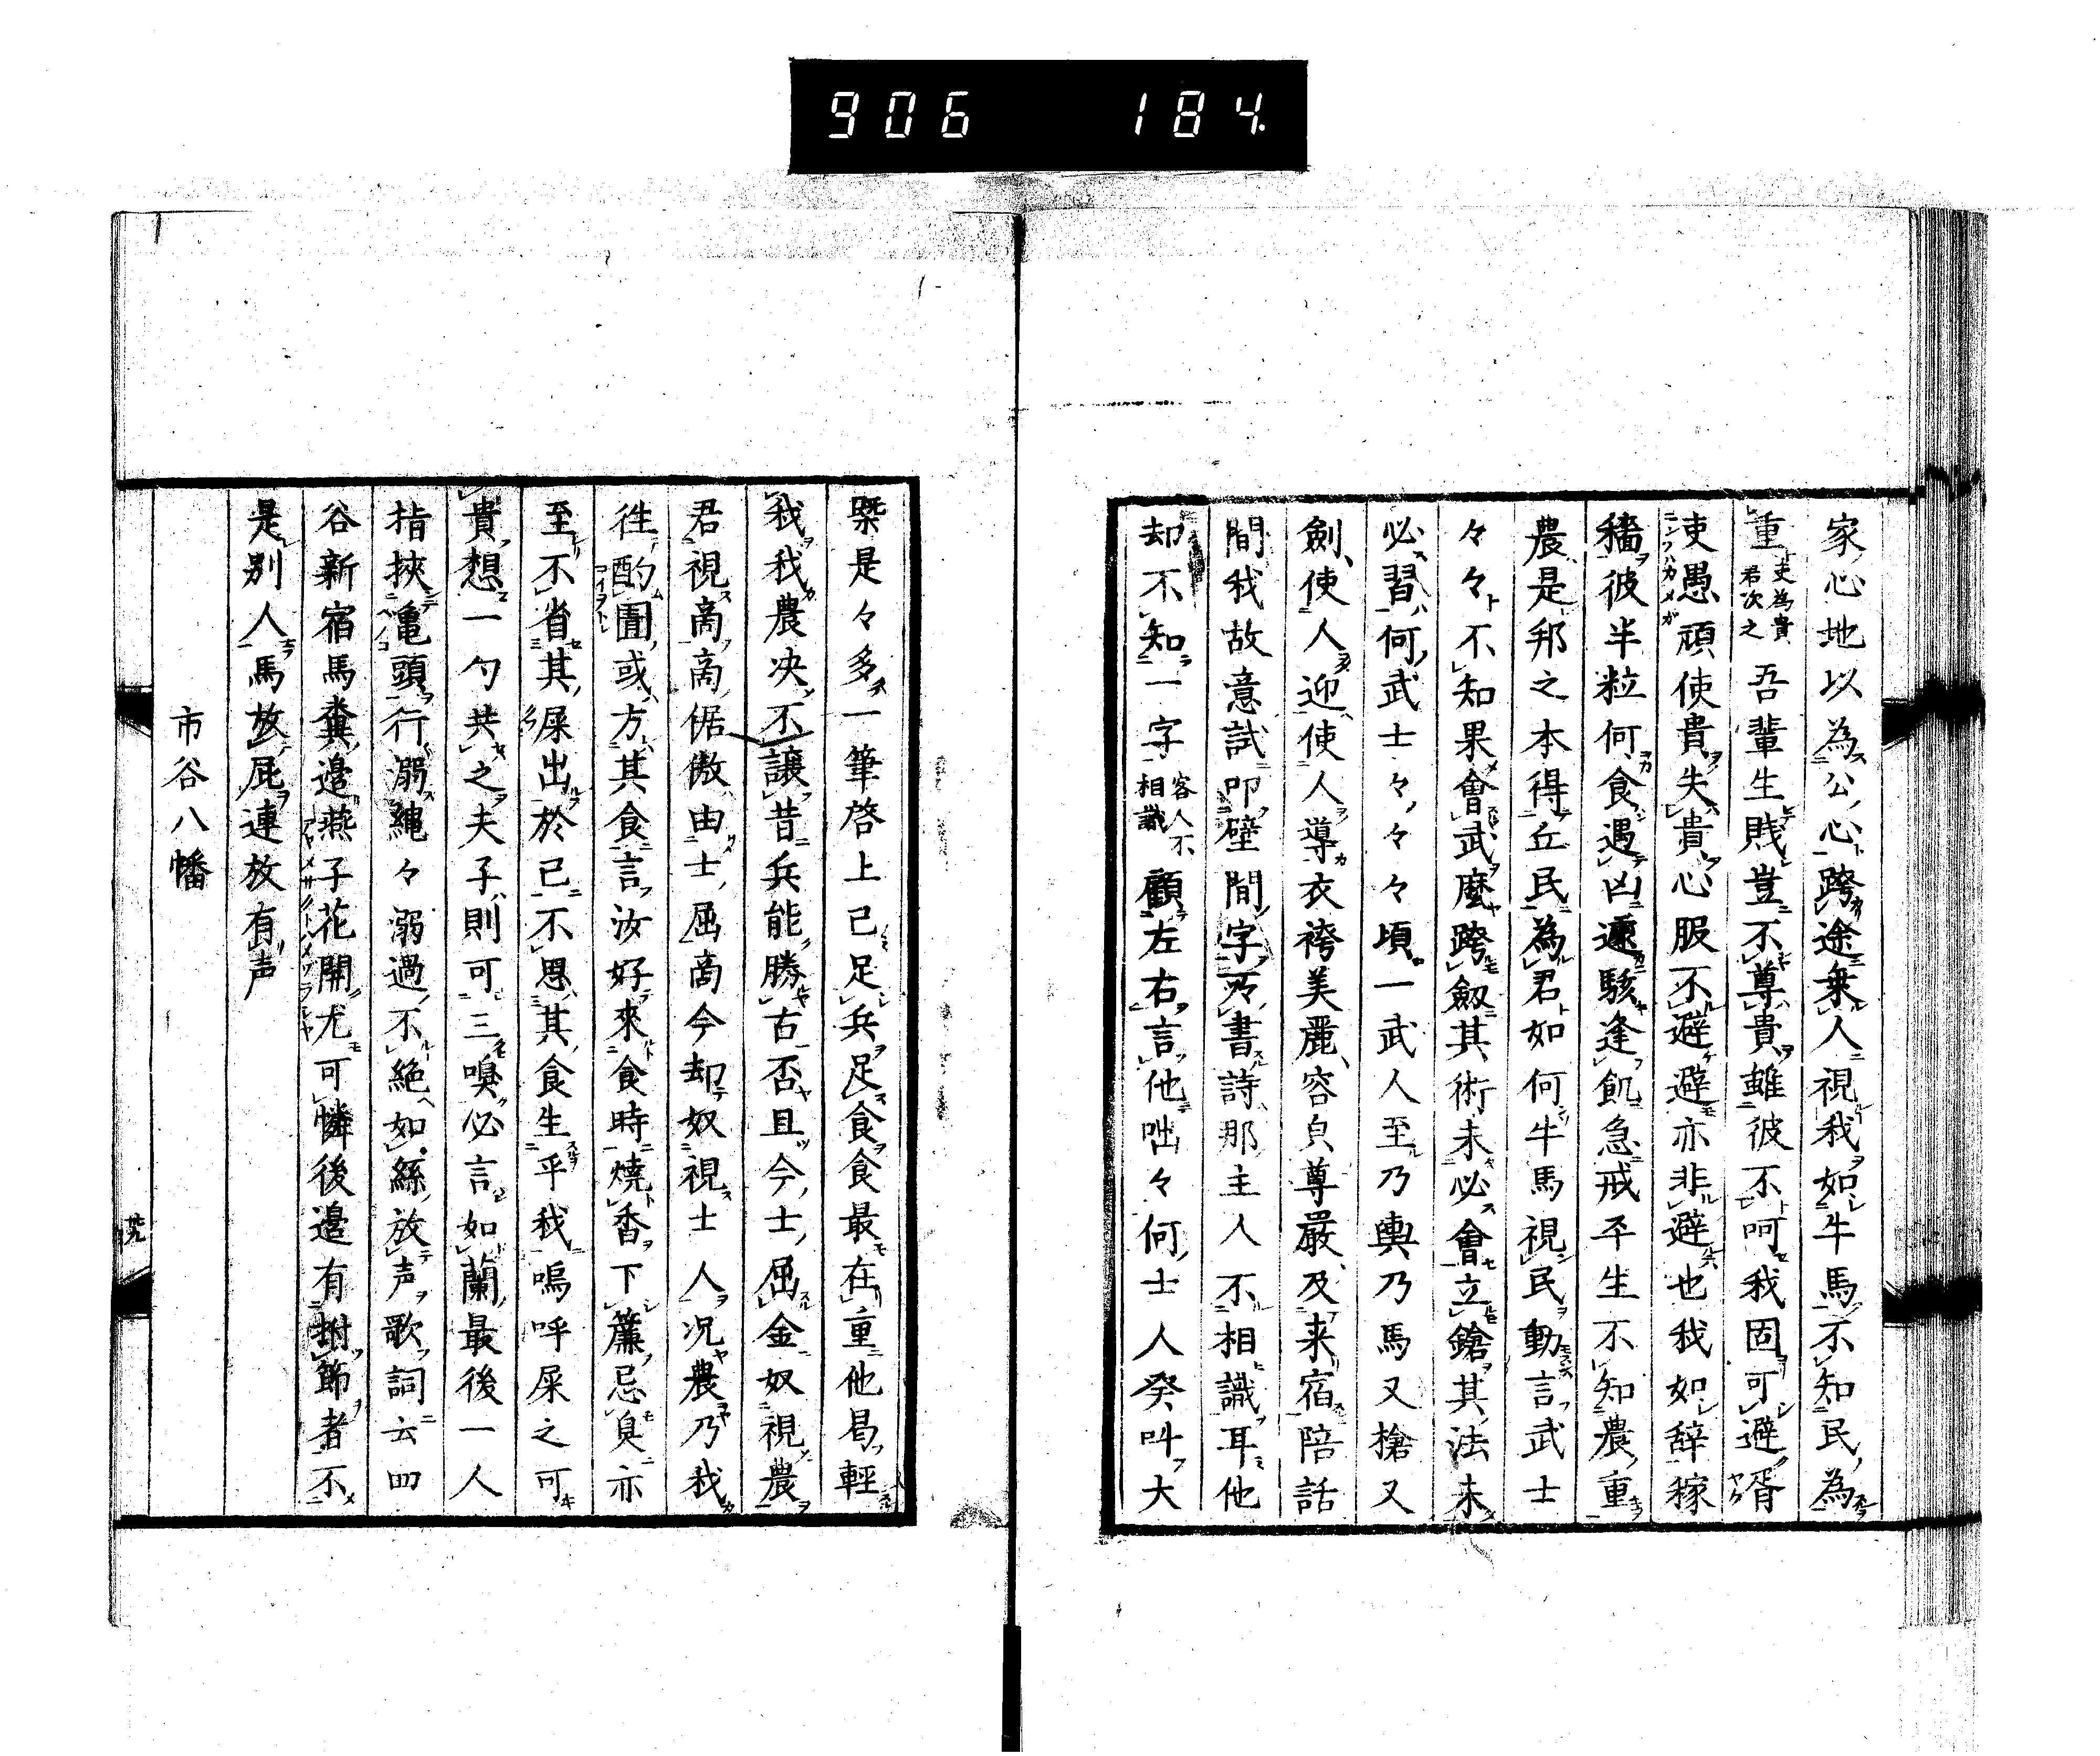 906 184.
家心地以為公心跨途乗人視我如牛馬不知民為
重吏為貴君次之吾輩生賎豈不尊貴雖彼不呵我固可避壻
吏愚頑使貴失貴心服不避避亦非避也我如辞稼
穡彼半粒何食遇凶遽駭逢飢急戒平生不知農重
農是邦之本得丘民為君如何牛馬視民動言武士
々々不知果會武麼跨劔其術未必會立鎗其法未
必習何武士々々々々頃一武人至乃輿乃馬又槍又
劍使人迎使人導衣袴美麗容貟尊嚴及来宿陪話
間我故意試叩壁間字乃書詩那主人不相識耳他
却不知一字客人不相識顧左右言他咄々何士人癸叫大
槩是々多一筆啓上已足兵足食食最在重他曷輕
我我農决不讓昔兵能勝古否且今士屈金奴視農
君視啇啇倨傲由士屈啇今却奴視士人况農乃我
徃酌圊或方其食言汝好來食時燒香下簾忌臭亦
至不省其屎出於己不思其食生乎我嗚呼屎之可
貴想一勺共之夫子則可三嗅必言如蘭最後一人
指挾亀頭行溺繩々溺過不絶如絲放声歌詞云四
谷新宿馬糞邊燕子花開尤可憐後邊有拊節者不
是別人馬放屁連放有声
市谷八幡